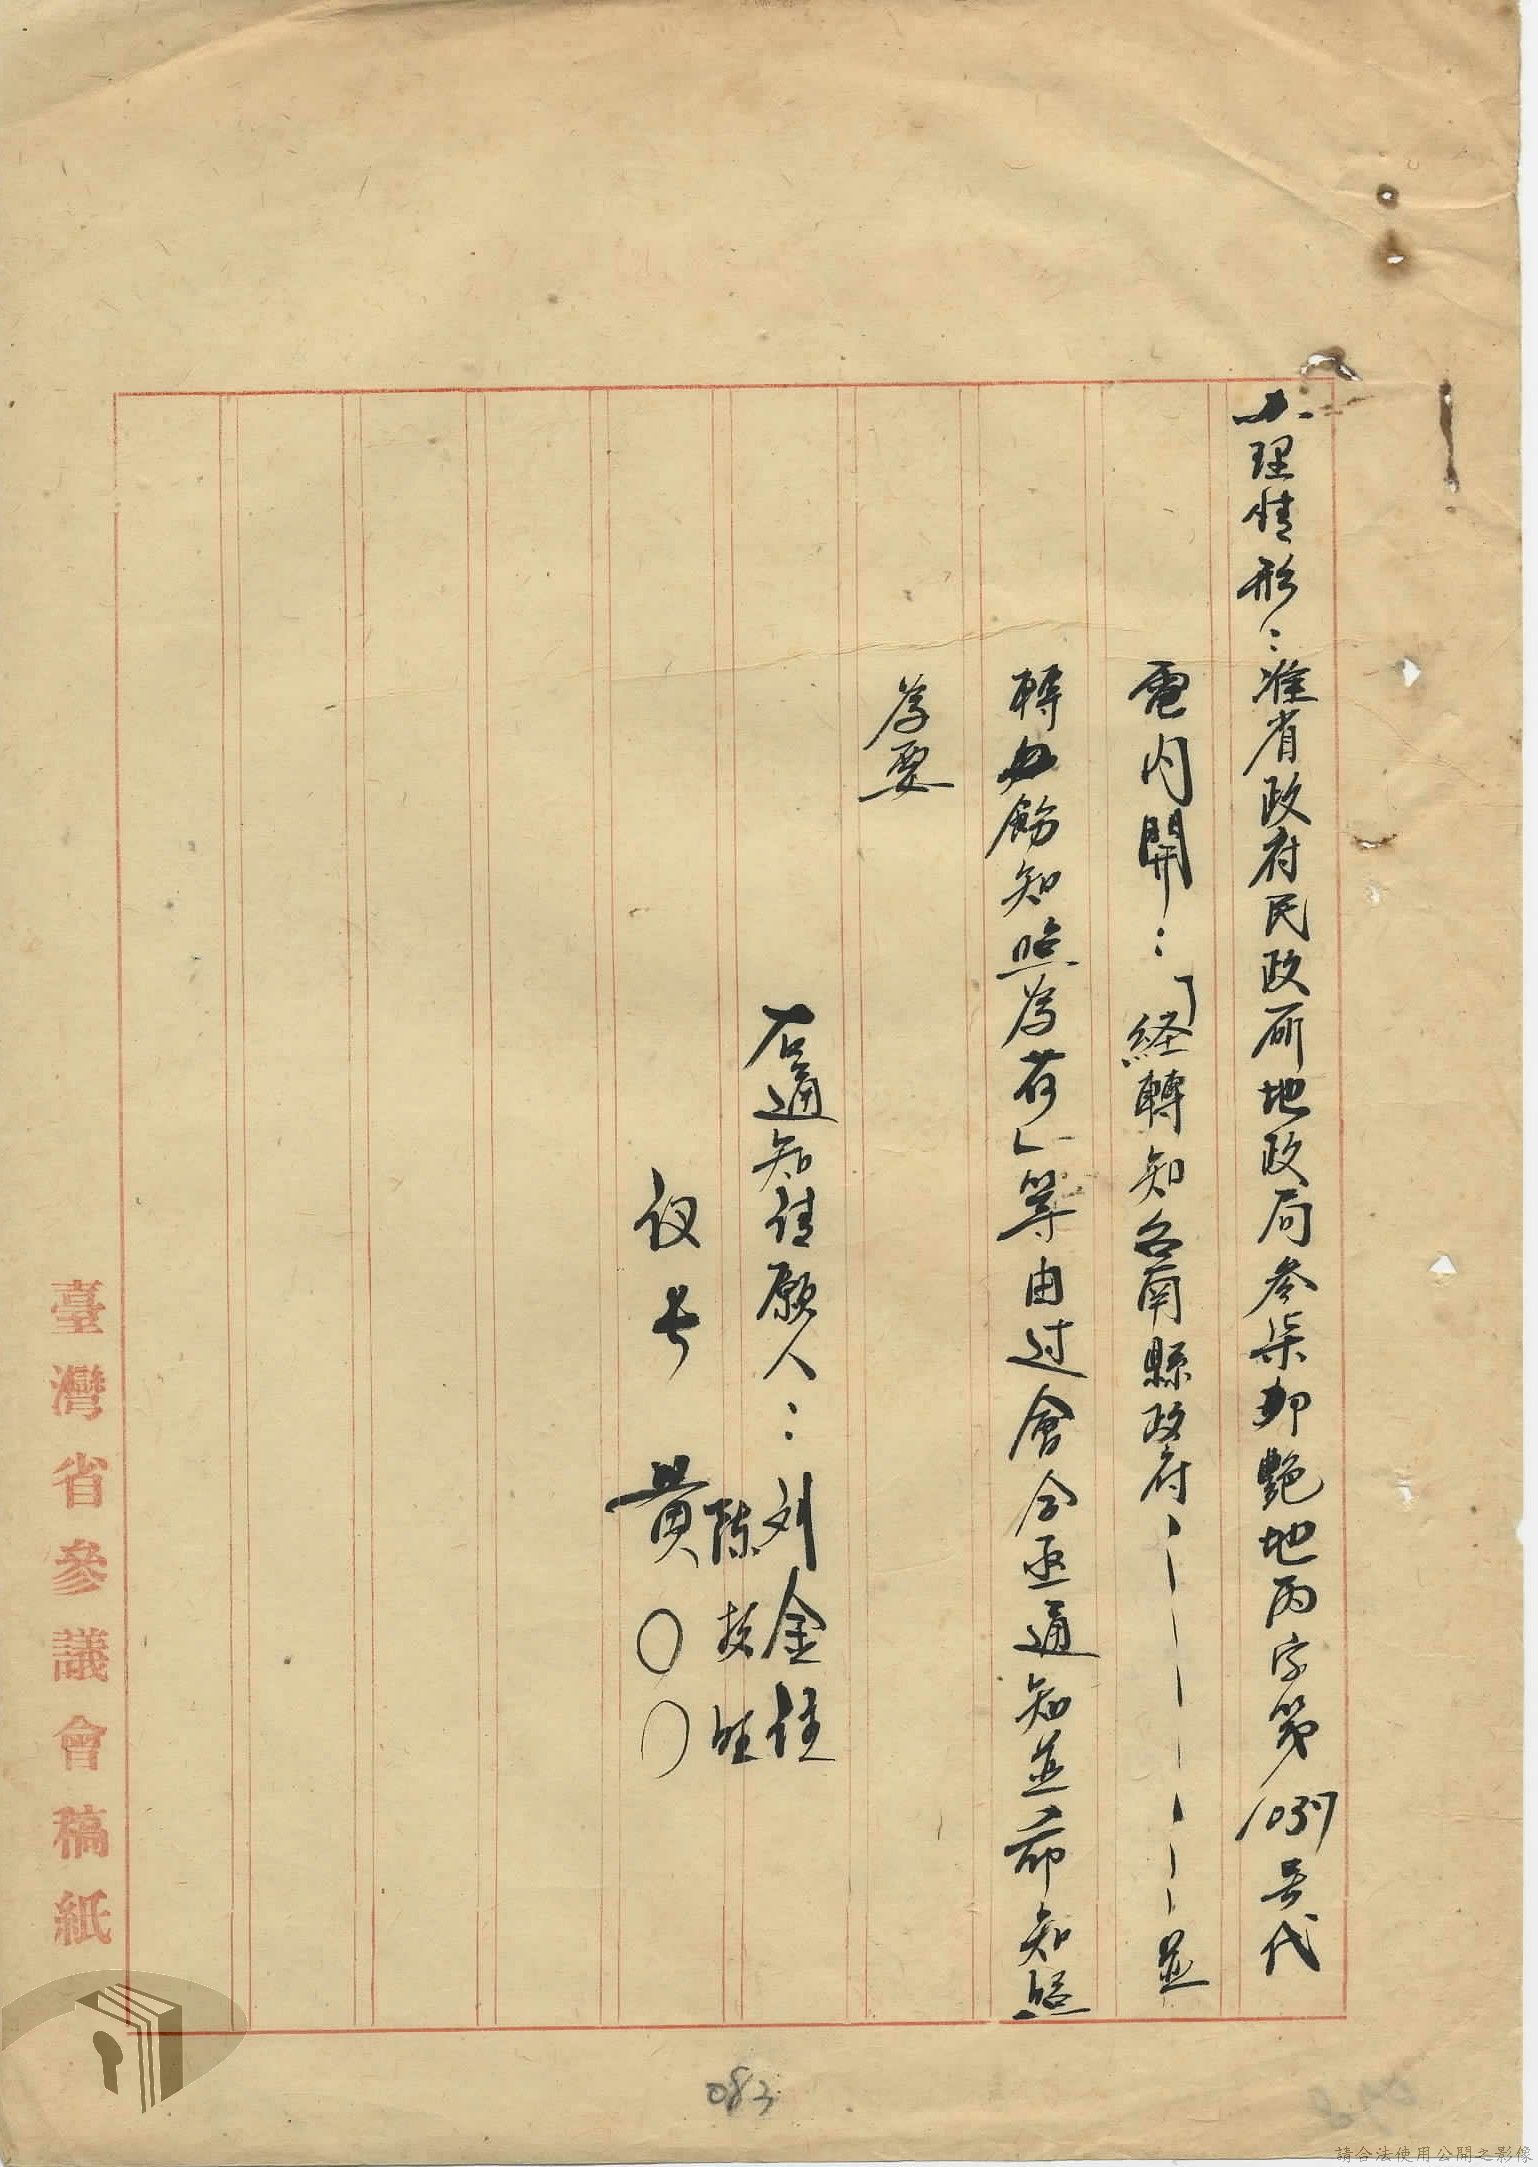 办理情形：准省政府民政厛地政局叁柒卯艶地丙字第1037号代
電内開：「経轉知台南縣政府－－－－－－－－並
轉飭知照為荷」等由过會合亟通知並希知照
為要
右通知請願人：刘金
陈 旺
议长 黄〇〇
臺灣省參議會稿紙
083
請合法使用公開之影像